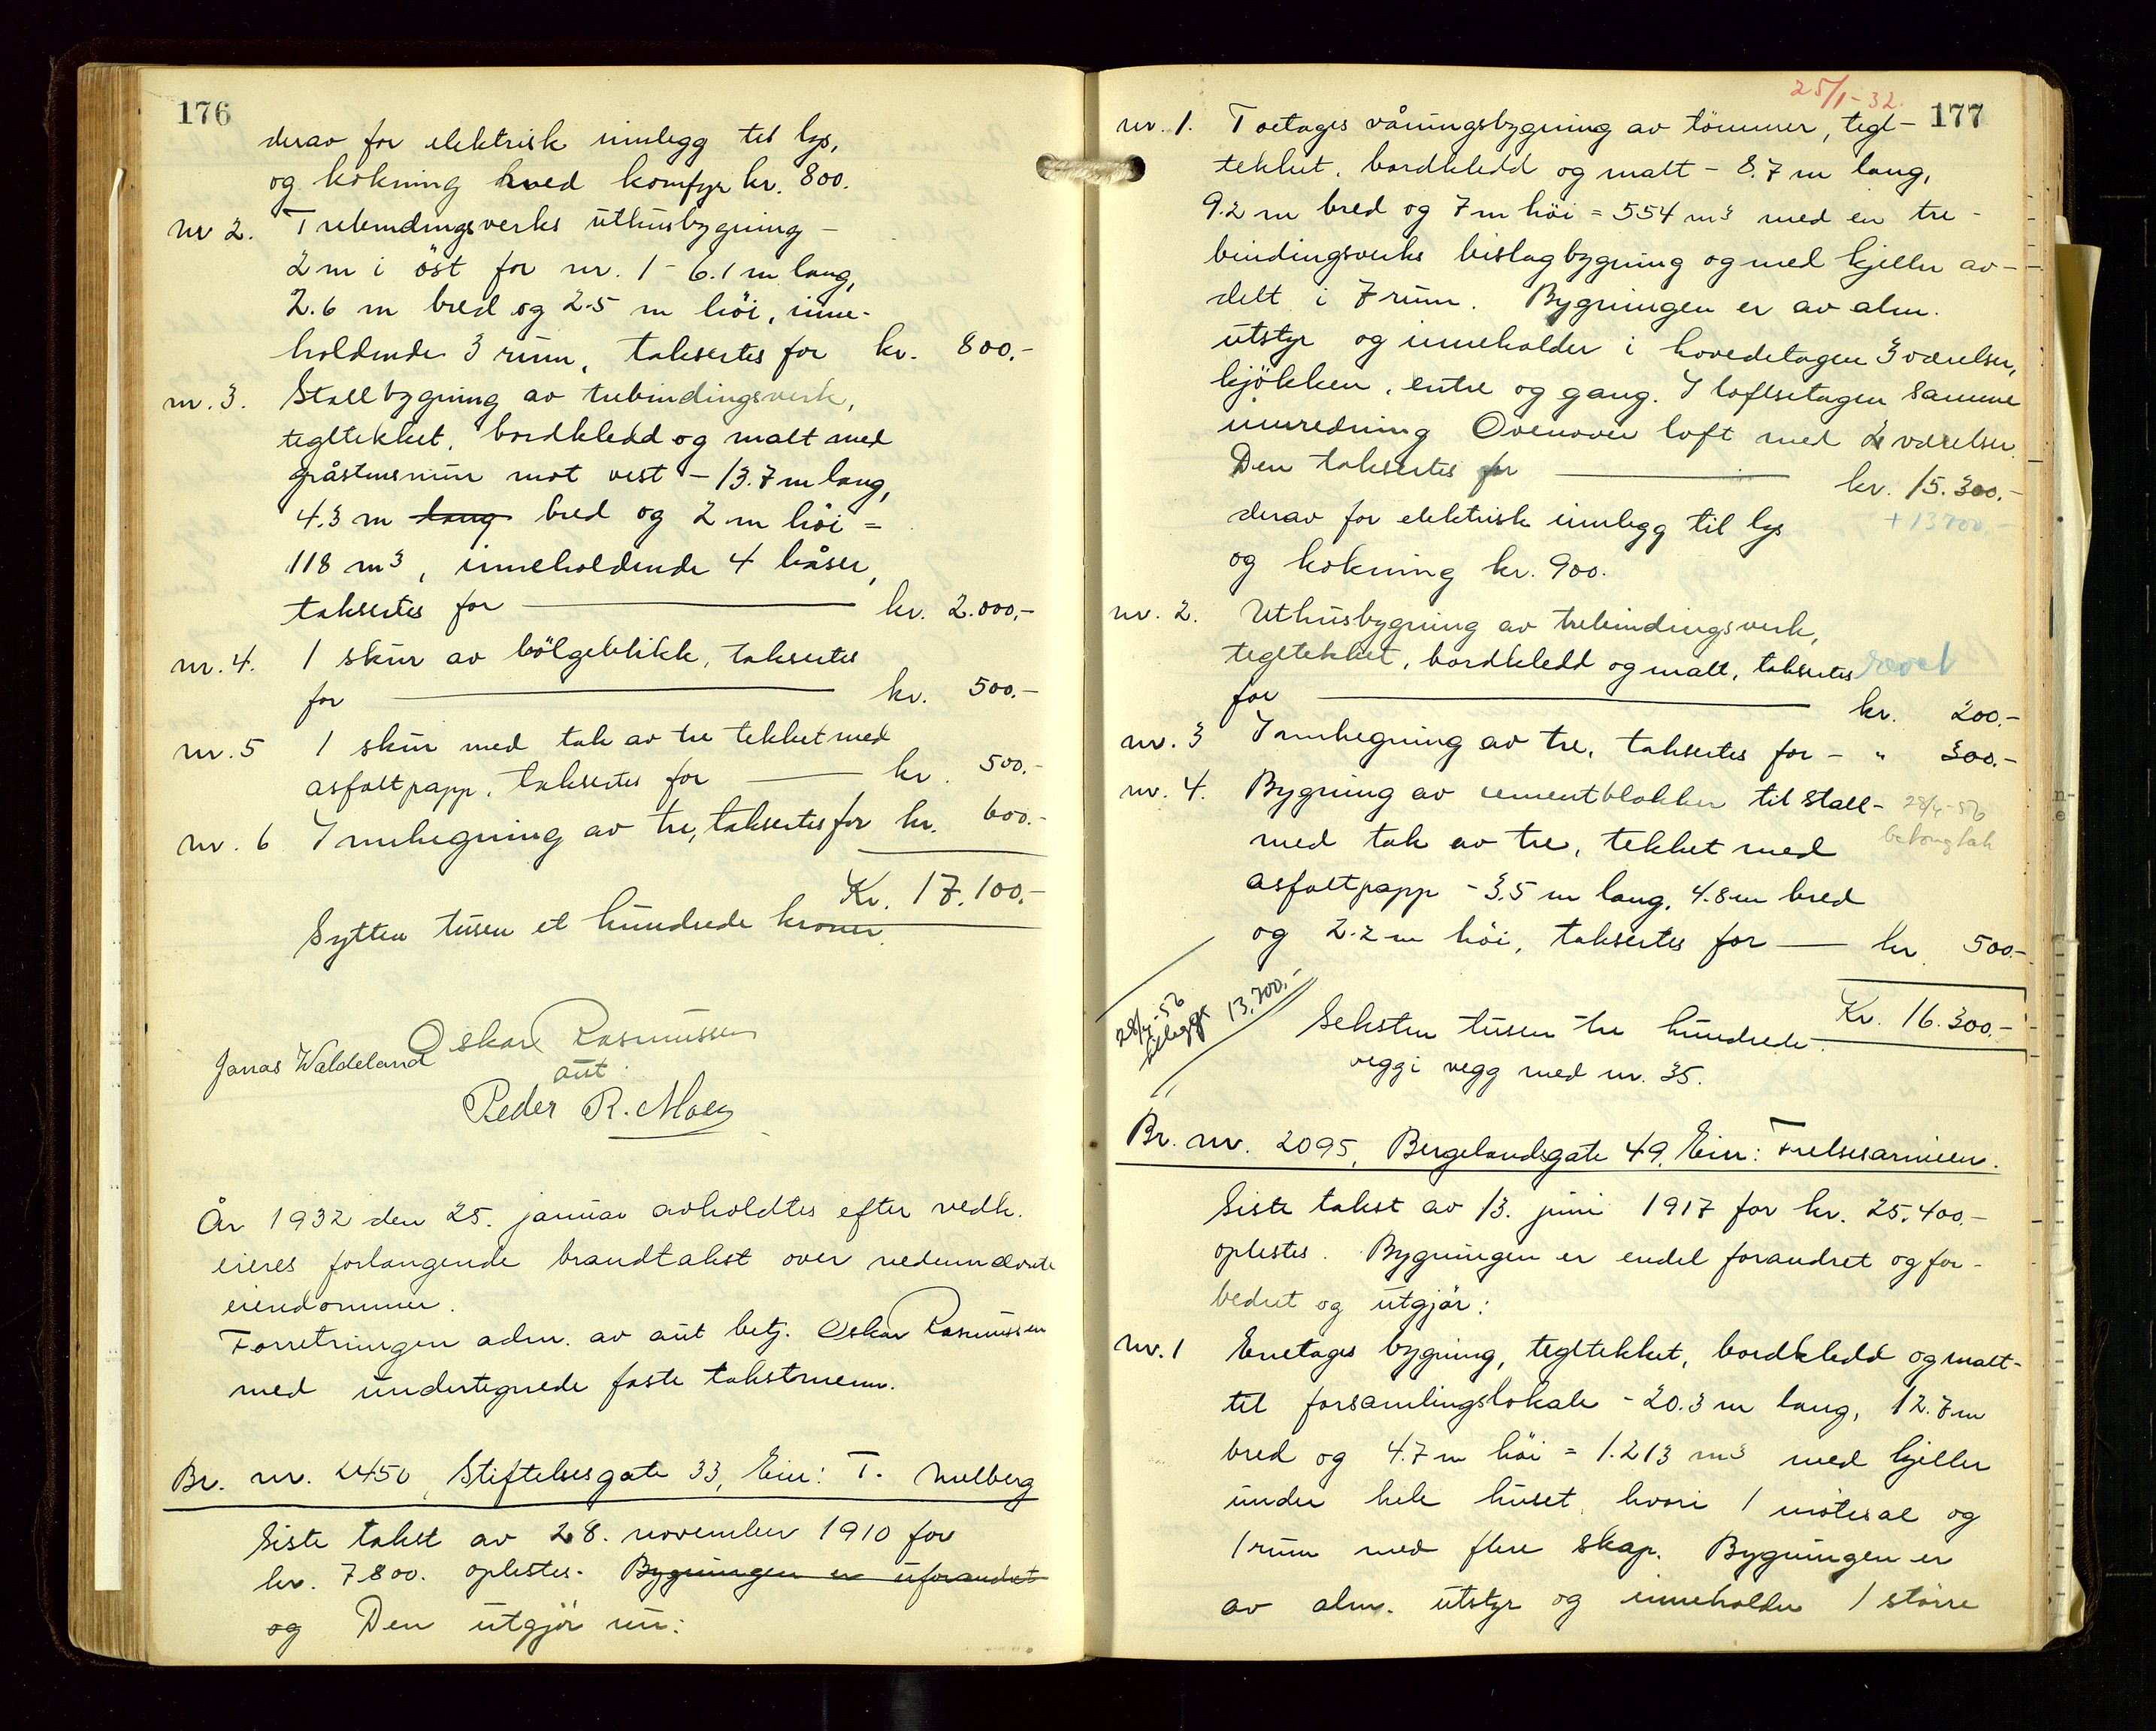 176
derav for elektrisk innlegg til lys,
og kokning hved komfyr kr. 800.
nr 2. Trebindingsverks uthusbygning -
2 m i öst for nr. 1 - 6.1 m lang,
2.6 m bred og 2.5 m höi, inne-
holdende 3 rum, taksertes for kr. 800.-
nr. 3. Stallbygning av trebindingsverk,
tegltekket, bordkledd og malt med
gråstensmur mot vest - 13.7 m lang,
4.3 m lang bred og 2 m höi =
118 m³, inneholdende 4 båser,
taksertes for kr. 2.000.-
nr. 4. 1 skur av bölgeblikk, taksertes
for kr. 500.-
nr. 5 1 skur med tak av tre tekket med
asfaltpapp, taksertes for kr. 500.-
nr. 6 Innhegning av tre, taksertes for kr. 600.-
Kr. 17.100.-
Sytten tusen et hundrede kroner.
Oskar Rasmussen
Jonas Waldeland
aut.
Peder R. Moen
År 1932 den 25. januar avholdtes efter vedk.
eieres forlangende brandtakst over nedennævnte
eiendommer.
Forretningen adm. av aut betj. Oskar Rasmussen
med undertegnede faste takstmenn.
Br. nr. 2450, Stiftelsesgate 33, Eier: T. Melberg
Siste takst av 28. november 1910 for
kr. 7800. oplestes. Bygningen er uforandret
og Den utgjör nu:
25/1-32. 177
nr. 1. Toetages våningsbygning av tömmer, tegl-
tekket, bordkledd og malt - 8.7 m lang,
9.2 m bred og 7 m höi = 554 m³ med en tre-
bindingsverks bislagbygning og med kjeller av-
delt i 7 rum. Bygningen er av alm.
utstyr og inneholder i hovedetagen 3 værelser,
kjökken, entre og gang. I loftsetagen samme
innredning Ovenover loft med 2 værelser.
Den taksertes for kr. 15.300.-
+ 13700.-
derav for elektrisk innlegg til lys
og kokning kr. 900.
nr. 2. Uthusbygning av trebindingsverk,
tegltekket, bordkledd og malt, taksertes revet
for kr. 200.-
nr. 3 Innhegning av tre, taksertes for - " 300.-
nr. 4. Bygning av cementblokker til stall- 28/4-56
med tak av tre, tekket med betongtak
asfaltpapp - 3.5 m lang, 4.8 m bred
og 2.2 m höi, taksertes for kr. 500.-
Kr. 16.300.-
28/4-56
tillegg 13.700.-
Seksten tusen tre hundrede.
vegg i vegg med nr. 35.
Br. nr. 2095, Bergelandsgate 49, Eier: Frelsesarmeen.
Siste takst av 13. juni 1917 for kr. 25.400.-
oplestes. Bygningen er endel forandret og for-
bedret og utgjör:
nr. 1 Enetages bygning, tegltekket, bordkledd og malt-
til forsamlingslokale - 20.3 m lang, 12.7 m
bred og 4.7 m höi = 1.213 m³ med kjeller
under hele huset, hvori 1 mötesal og
1 rum med flere skap. Bygningen er
av alm. utstyr og inneholder 1 större